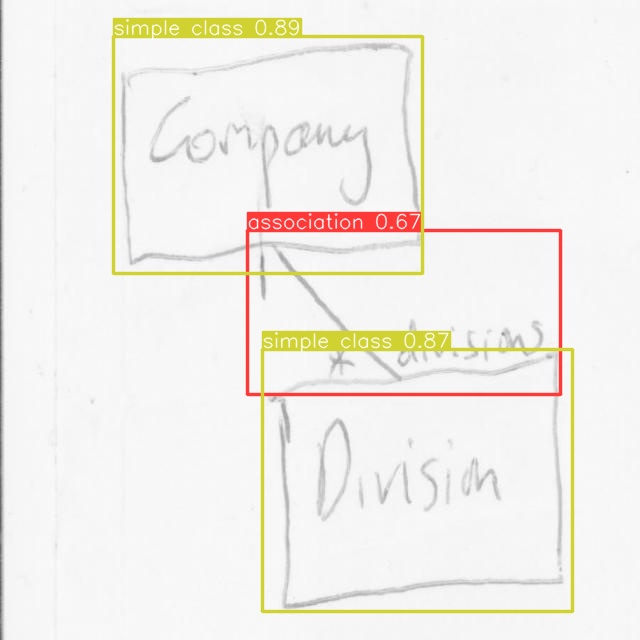 simple class 0.89
Company
association 0.67
simple class 0.87
* divisions
Division